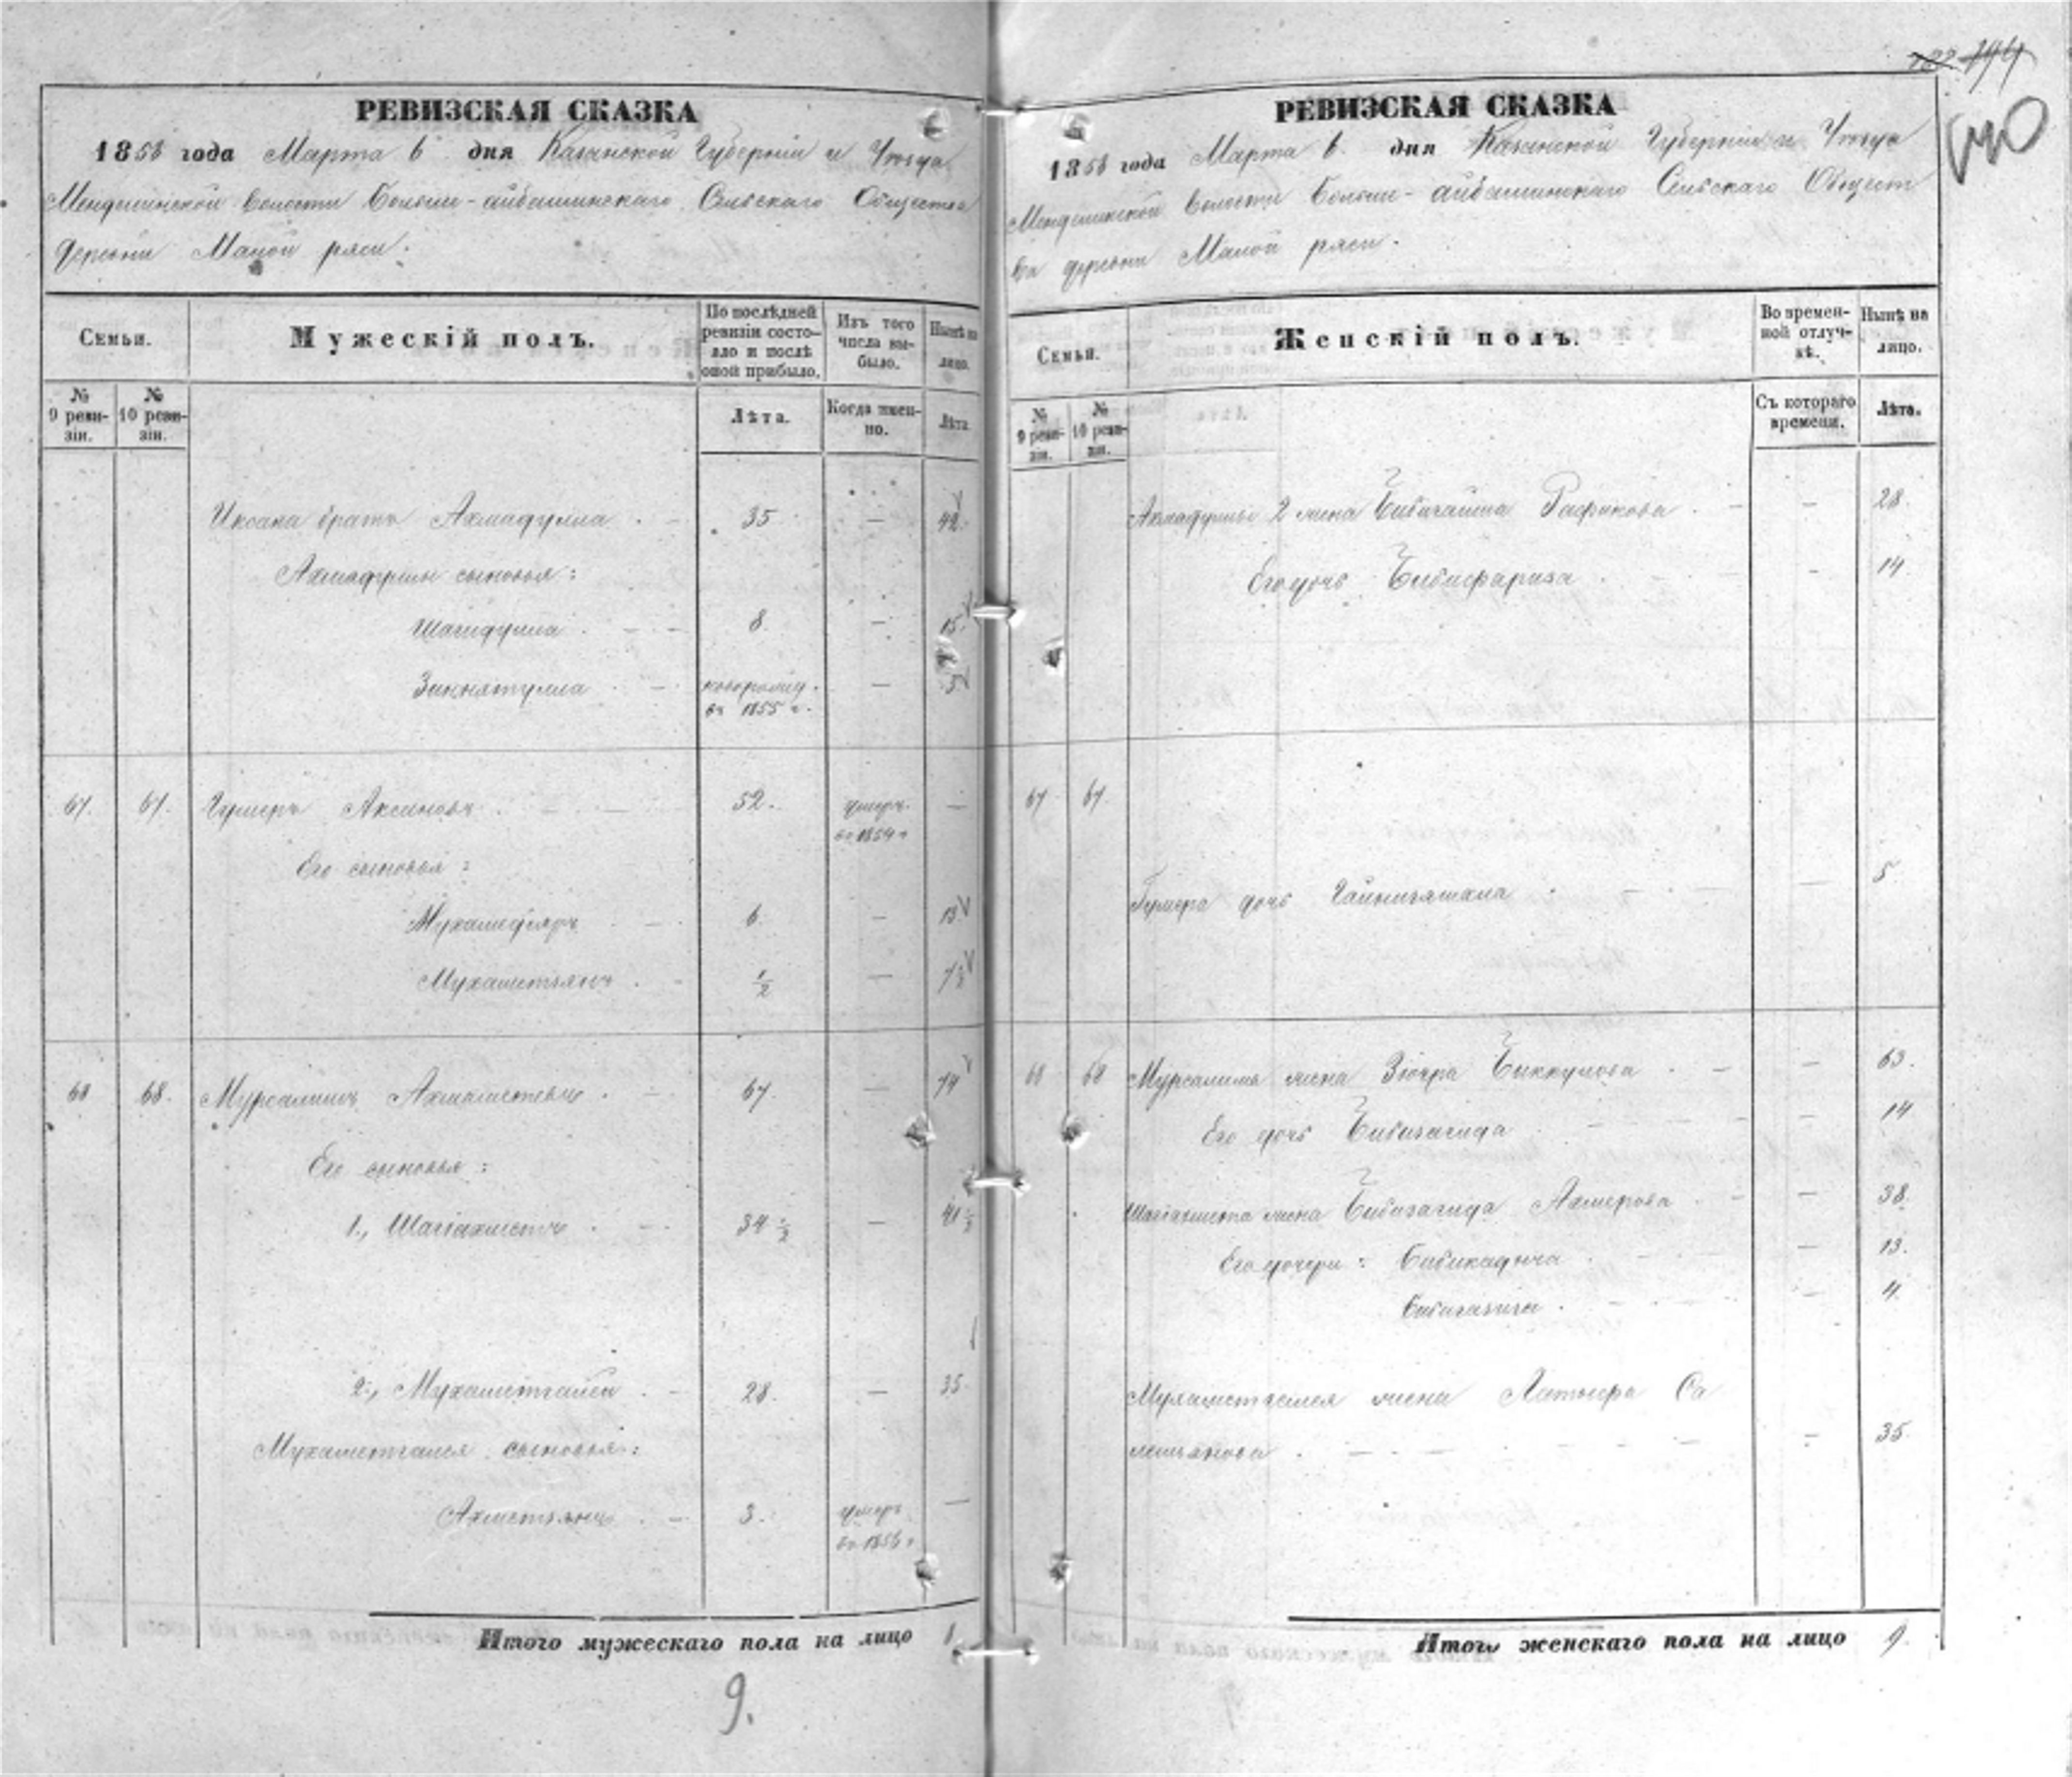 РЕВИЗСКАЯ СКАЗКА
1858 года Марта 6 дня Казанской Губерніи и Уѣзда
Менделинской волости Больше-айбашинскаго Сельскаго Общества
деревни Малой ряси.
Семьи.
Мужескій полъ.
По послѣдней ревизіи состояло и послѣ оной прибыло.
Изъ того числа выбыло.
Нынѣ на лицо.
№ 9 ревизіи.
№ 10 ревизіи.
Лѣта.
Когда именно.
Лѣта.
Иксана братъ Ахмадулла 35 — 42
Ахмадуллы сыновья:
Шагидулла 8 — 15
Зиннятулла новорожд. въ 1855 г. — 3
67. 67. Гумеръ Аксановъ 52. умеръ въ 1854 г —
Его сыновья:
Мухамедьяръ 6 — 13
Мухаметьянъ 1/2 — 7 1/2
68 68. Мурсалимъ Ахмаметевъ 67. — 74
Его сыновья:
1., Шагіахметъ 34 1/2 — 41 1/2
2., Мухаметгалей 28. — 35
Мухаметгалея сыновья:
Ахметьянъ 3. умеръ въ 1856 г —
Итого мужескаго пола на лицо
9.
144
140
РЕВИЗСКАЯ СКАЗКА
1858 года Марта 6 дня Казанской Губерніи и Уѣзда
Менделинской волости Больше-айбашинскаго Сельскаго Общест
ва деревни Малой ряси.
Семьи.
Женскій полъ.
Во временной отлучкѣ.
Нынѣ на лицо.
№ 9 ревизіи.
№ 10 ревизіи.
Съ котораго времени.
Лѣта.
Ахмадуллы 2 жена Бибигайша Рафикова — 28.
Его дочь Бибифариза — 14
67 67.
Гумера дочь Гайнигямала — 5
68 68 Мурсалима жена Зюгра Биккулова — 63.
Его дочь Бибизагида — 14
Шагіахмета жена Бибизагида Ахмерова — 38.
Его дочери: Бибикадича — 13.
— 4.
Мухаметгалея жена Латыфа Са
— 35
Итого женскаго пола на лицо 9.